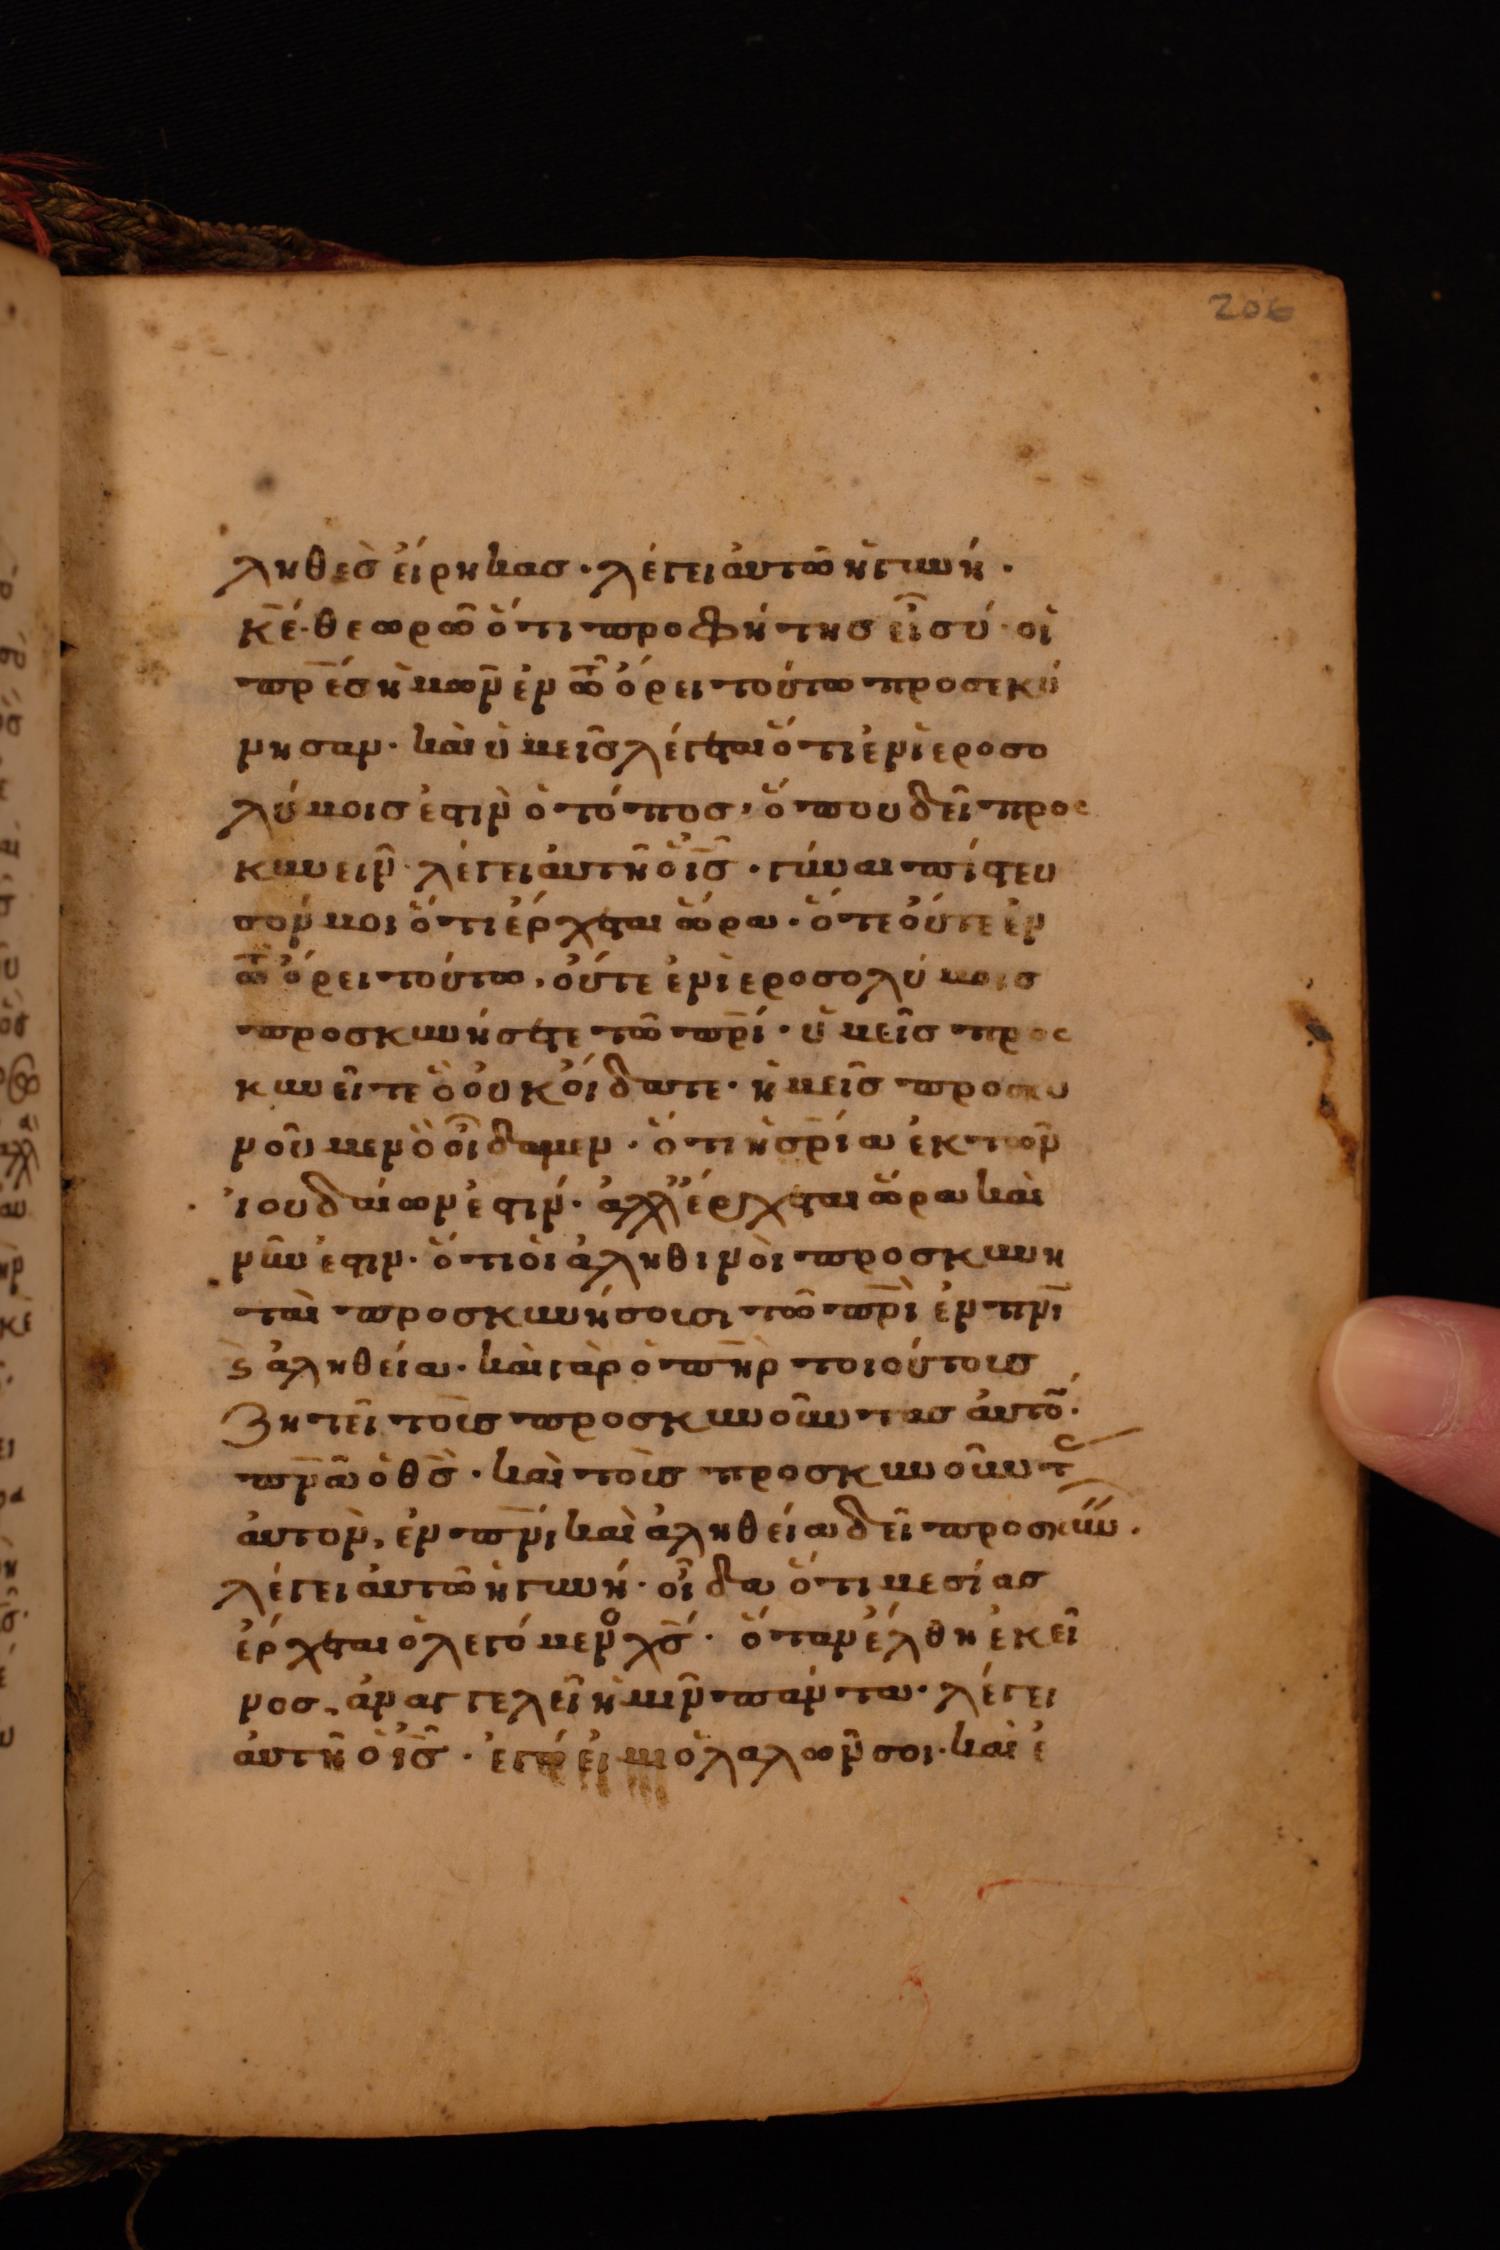 206
ληθὲσ ἐίρηκασ · λέγει ἀυτῶ ἡ γυνή ·
κ̅ε̅ · θεωρῶ ὅτι προφήτησ εἶ σύ · οἱ
πρ̅έσ ἡμῶν ἐν τῶ ὄρει τούτω προσεκύ
νησαν · καὶ ὑμεῖσ λέγεται ὅτι ἐν ἱεροσο
λύμοισ ἐστὶν ὁ τόπος, ὅπου δεῖ προς
κυνεῖν · λέγει ἀυτῆ ὁ ἰ̅σ̅ · γύναι πίστευ
σόν μοι ὅτι ἔρχεται ὥρα · ὅτε ὀύτε ἐν
τῶ ὄρει τούτω, ὀύτε ἐν ἱεροσολύμοισ
προσκυνήσετε τῶ πρ̅ί · ὑμεῖσ προς
κυνεῖτε ὃ ὀυκ ὀίδατε · ἡμεῖσ προσκυ
νοῦμεν ὃ οἶδαμεν · ὅτι ἡ σρ̅ία ἐκ τῶν
ἰουδαίων ἐστίν · ἀλλ' ἔρχεται ὥρα καὶ
νῦν ἐστιν · ὅτι ὁι ἀληθινὸι προσκυνη
ταὶ προσκυνήσουσι τῶ πρ̅ὶ ἐν πν̅ι
ϗ ἀληθεία · καὶ γὰρ ὁ π̅ηρ τοιούτουσ
ζητεῖ τοὺσ προσκυνοῦντασ ἀυτό̅ ·
πν̅α ὁ θ̅σ̅ · καὶ τοὺσ προσκυνοῦντ
ἀυτὸν, ἐν πν̅ι καὶ ἀληθεία δεῖ προσκυν̅ ·
λέγει ἀυτῶ ἡ γυνή · οἶδα ὅτι μεσίασ
ἔρχεται ὁ λεγόμενο χ̅σ̅ · ὅταν ἔλθη ἐκεῖ
νοσ, ἀναγγελεῖ ἡμῖν πάντα · λέγει
ἀυτῆ ὁ ἰ̅σ̅ · ἐγώ ἐιμι ὁ λαλῶν σοι · καὶ ἐ